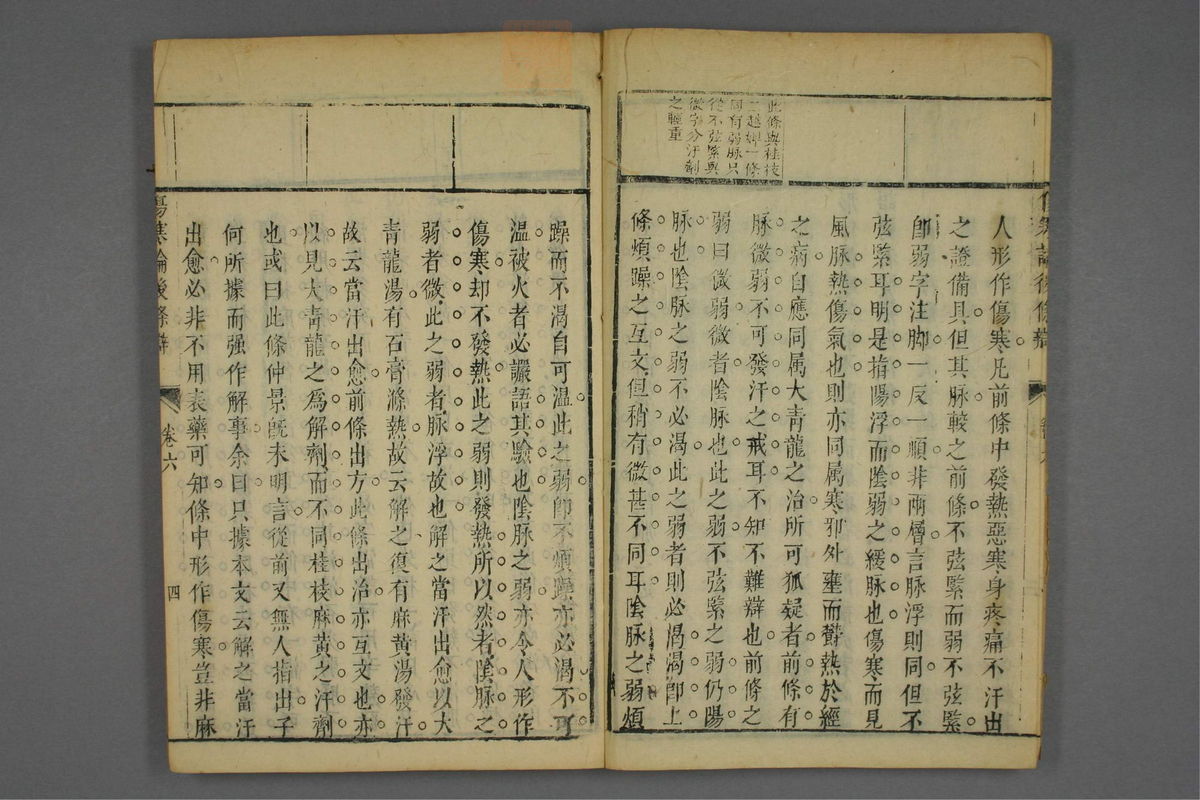 此條與桂枝
二越婢一條
同有弱脉只
從不弦緊與
微字分汗劑
之輕重
人形作傷寒凡前條中發熱惡寒身疼痛不汗出
之證備具但其脉較之前條不弦緊而弱不弦緊
卽弱字注脚一反一順非兩層言脉浮則同但不
弦緊耳明是指陽浮而陰弱之緩脉也傷寒而見
風脉熱傷氣也則亦同属寒邪外壅而欝熱於經
之病自應同属大青龍之治所可狐疑者前條有
脉微弱不可發汗之戒耳不知不難辯也前條之
弱曰微弱微者陰脉也此之弱不弦緊之弱仍陽
脉也陰脉之弱不必渴此之弱者則必渴渴卽上
條煩躁之互文但稍有微甚不同耳陰脉之弱煩
躁而不渴自可温此之弱卽不煩躁亦必渴不可
温被火者必讝語其驗也陰脉之弱亦令人形作
傷寒却不發熱此之弱則發熱所以然者陰脉之
弱者微此之弱者脉浮故也解之當汗出愈以大
青龍湯有石膏滌熱故云解之復有麻黄湯發汗
故云當汗出愈前條出方此條出治亦互文也亦
以見大青龍之爲解劑而不同桂枝麻黄之汗劑
也或曰此條仲景旣未明言從前又無人指出子
何所據而强作解事余曰只據本文云解之當汗
出愈必非不用表藥可知條中形作傷寒豈非麻
傷寒論後條辯
卷六
四